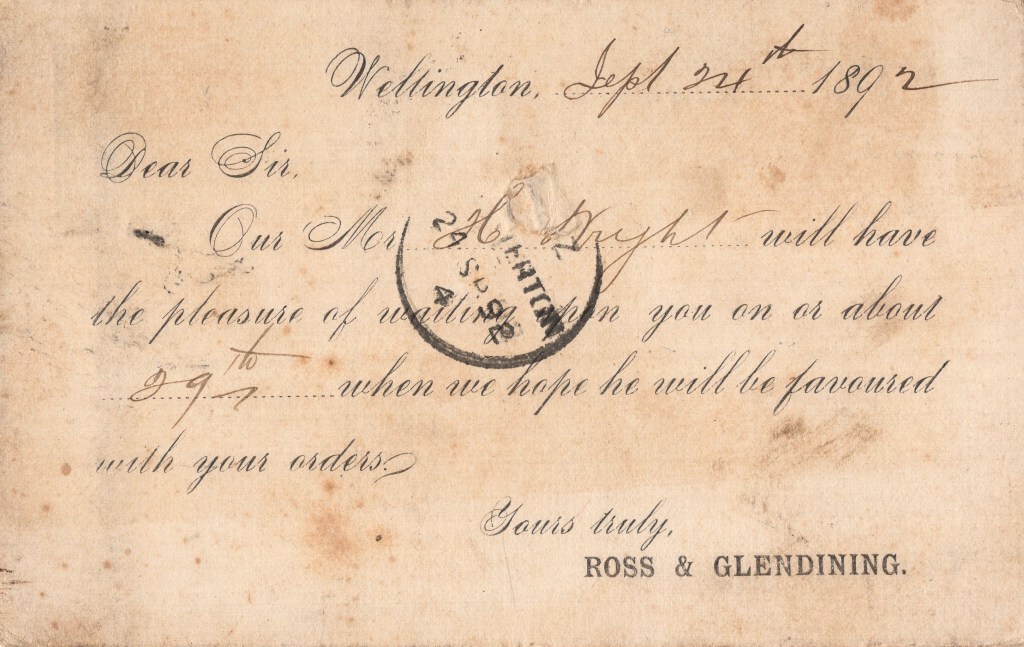 Wellington, Sept 24th 1892
Dear Sir,
Our Mr H Wright will have
the pleasure of waiting upon you on or about
29th when we hope he will be favoured
with your orders.
Yours truly,
ROSS & GLENDINING.
24 SP 92
4